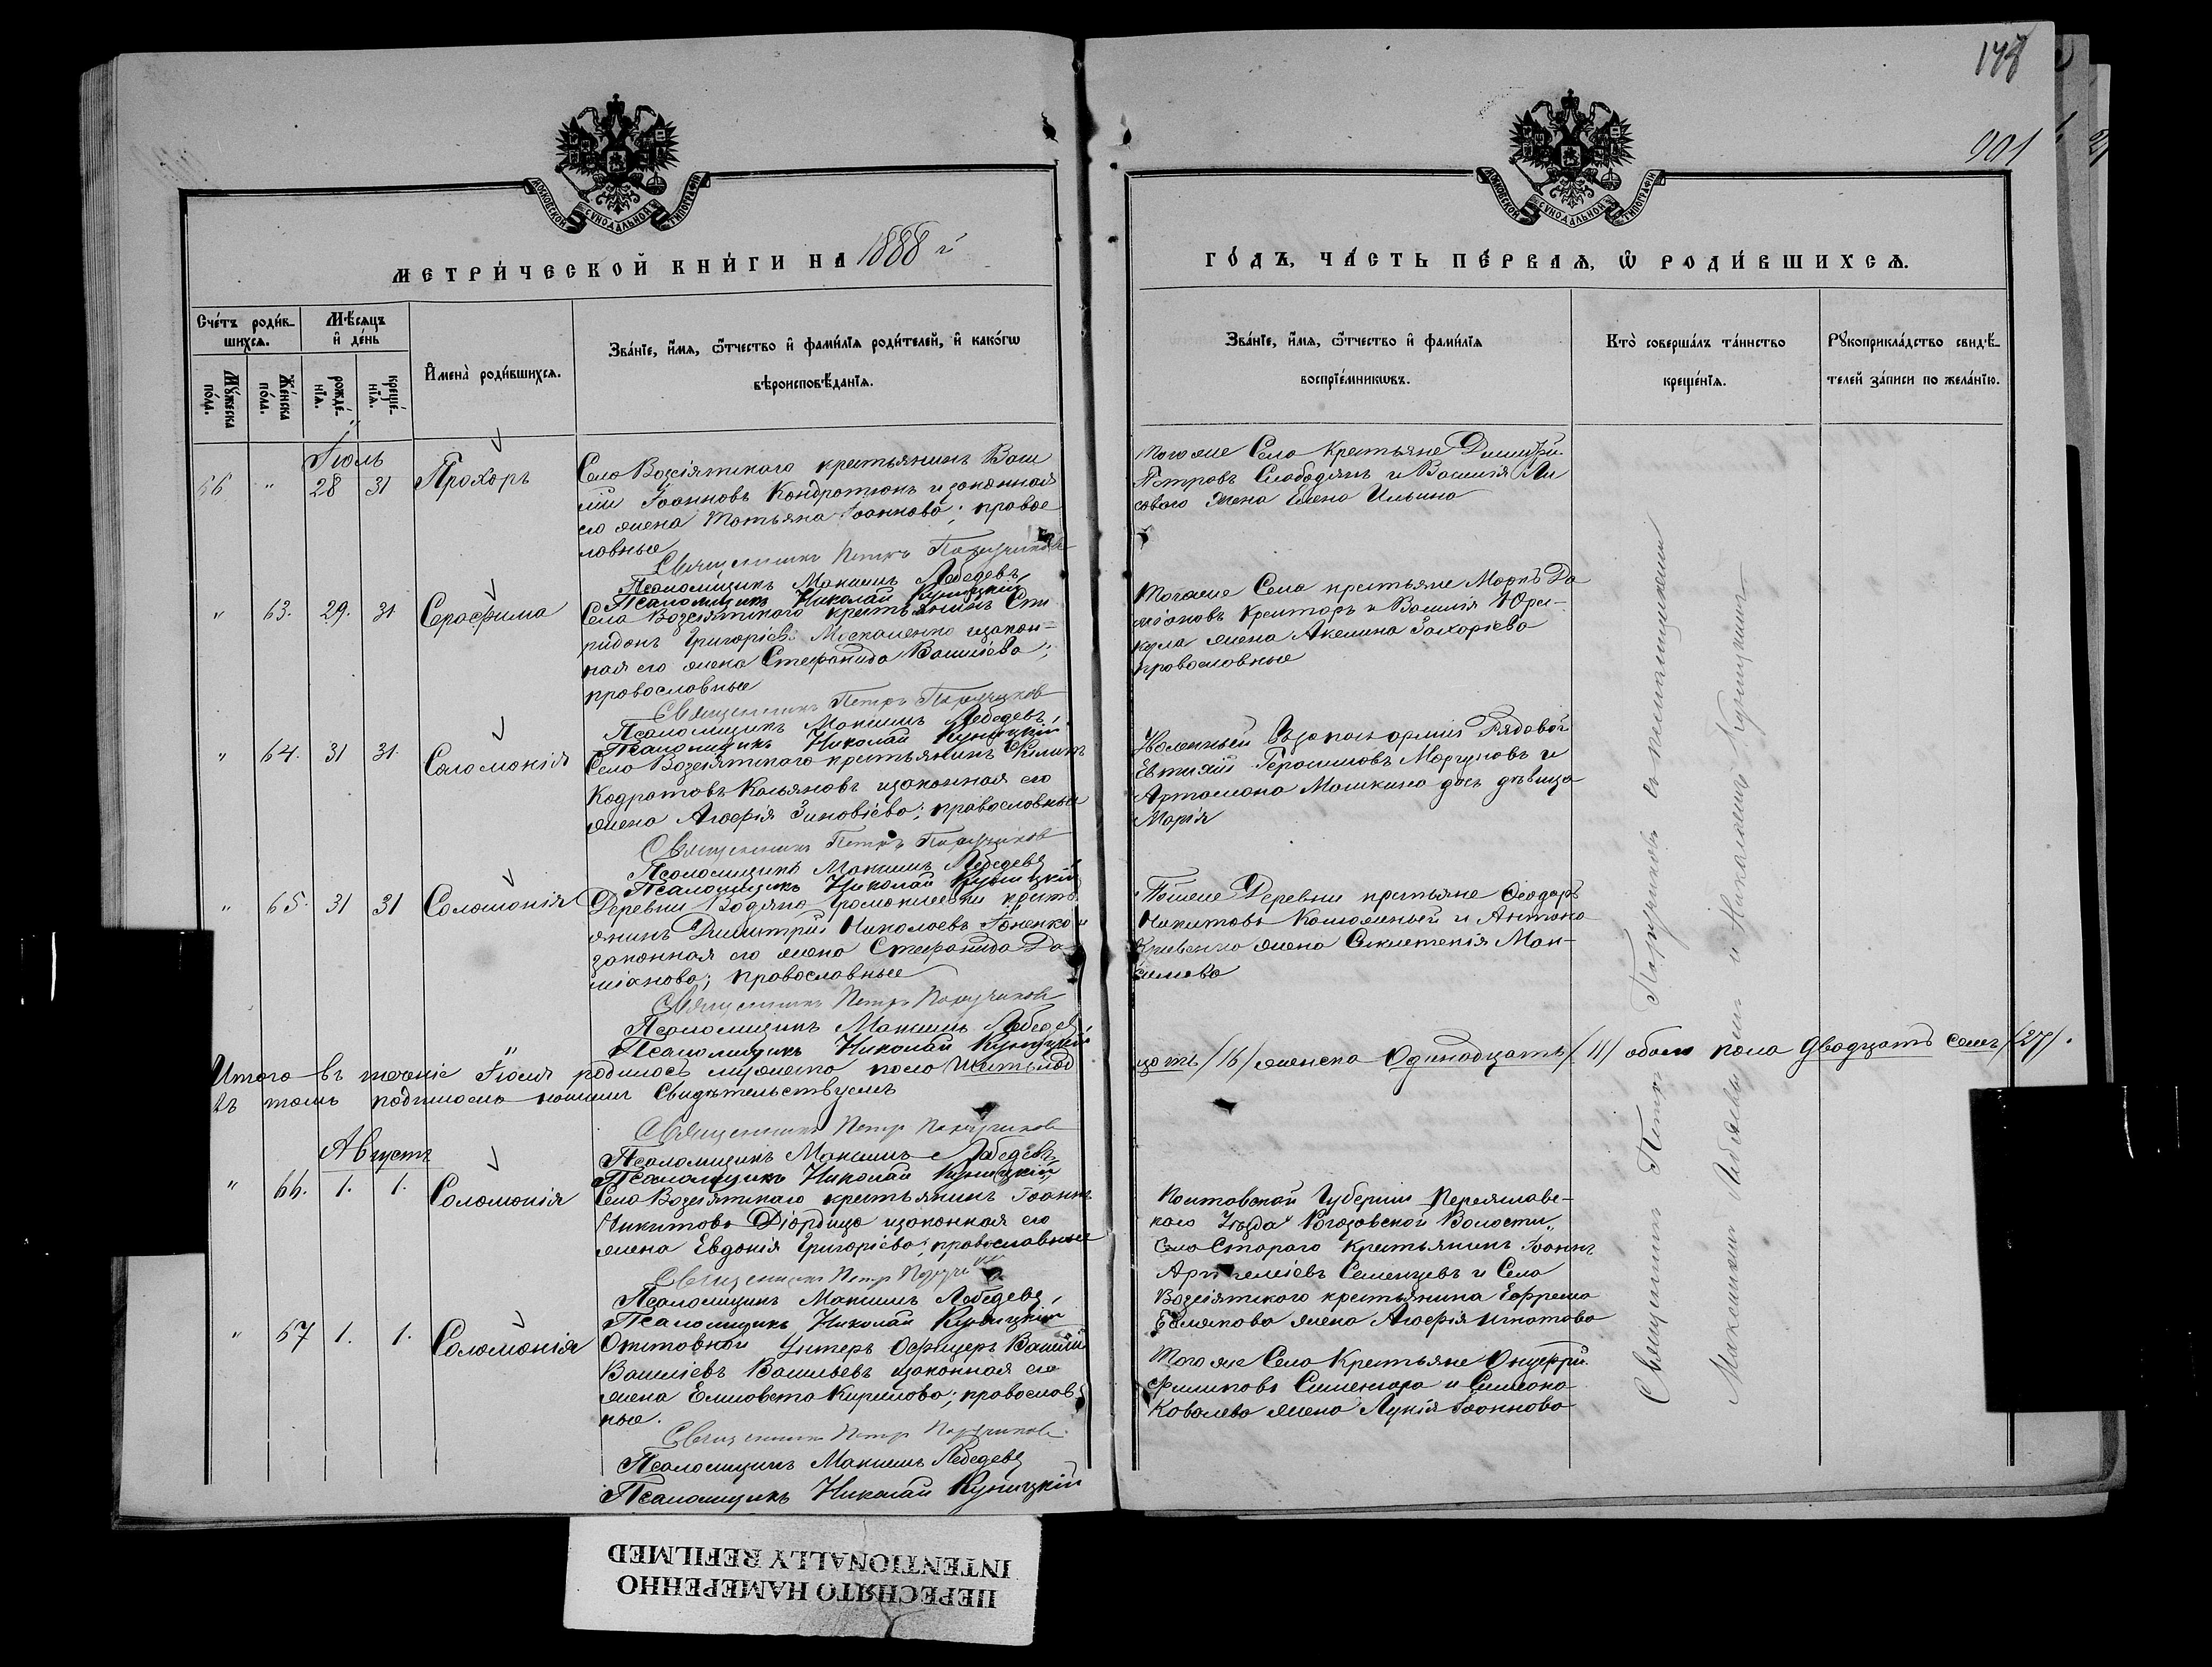 178
901
МОСКОВСКОЙ СѴНОДАЛЬНОЙ ТИПОГРАФІИ
МОСКОВСКОЙ СѴНОДАЛЬНОЙ ТИПОГРАФІИ
МЕТРИ́ЧЕСКОЙ КНИ́ГИ НА 1888 й
ГО́ДЪ, ЧА́СТЬ ПЕ́РВАѦ, Ѡ РОДИ́ВШИХСѦ.
Сче́тъ роди́в-
шихсѧ.
Мѣ́сѧцъ
и҆ де́нь
Мꙋ́жеска по́ла.
Же́нска по́ла.
рожде́-
нїѧ.
креще́-
нїѧ.
И҆мена̀ роди́вшихсѧ.
Зва́нїе, и҆́мѧ, ѻ҆́тчество и҆ фами́лїѧ роди́телей, и҆ како́гѡ
вѣроисповѣ́данїѧ.
Зва́нїе, и҆́мѧ, ѻ҆́тчество и҆ фами́лїѧ
воспрїе́мникѡвъ.
Кто̀ соверша́лъ та́инство
креще́нїѧ.
Рꙋкоприкла́дство свидѣ́-
телей за́писи по жела́нїю.
Іюль
66 " 28 31 Прохоръ
Села Возсіятскаго крестьянинъ Васи
лій Іоанновъ Кондратюкъ и законная
его жена Татьяна Іоаннова; правос
лавные
Священникъ Петръ Поручиковъ
Псаломщикъ Максимъ Лебедевъ
Псаломщикъ Николай Куницкій
Того же Села Крестьяне Димитрій
Петровъ Слободянъ и Василія Ли
соваго жена Елена Ильина
" 63. 29. 31 Серафима
Села Возсіятскаго крестьянинъ Спи
ридонъ Григоріевъ Москаленко и закон-
ная его жена Стефанида Василіева;
православные
Священникъ Петръ Поручиковъ
Псаломщикъ Максимъ Лебедевъ
Псаломщикъ Николай Куницкій
Того же Села крестьяне Маркъ Да
міановъ и Василія Юрс-
кула жена Акилина Захаріева
православные
" 64. 31 31. Соломонія
Села Возсіятскаго крестьянинъ Филипъ
Кодратовъ Касьяновъ и законная его
жена Агафія Зиновіева; православные
Священникъ Петръ Поручиковъ
Псаломщикъ Максимъ Лебедевъ
Псаломщикъ Николай Куницкій
Уволенный въ запасъ арміи Рядовой
Евтихій Герасимовъ Моргуновъ и
Артамона Мошкина дочь дѣвица
Марія
" 65. 31 31 Соломонія
Деревни Водяно Громоклеевки кресть
янинъ Димитрій Николаевъ Гоненко и
законная его жена Стефанида Да-
міанова; православные
Священникъ Петръ Поручиковъ
Псаломщикъ Максимъ Лебедевъ
Псаломщикъ Николай Куницкій
Тойже Деревни крестьяне Ѳеодоръ
Никитовъ и Антона
Кривенко жена Мак-
симова
Итого въ теченіе Іюля родилось мужеска пола шестьнад
цать /16/ женска Одинадцать /11/ обоего пола двадцать семь /27/.
въ томъ подписомъ нашимъ свидѣтельствуемъ
Священникъ Петръ Поручиковъ
Псаломщикъ Максимъ Лебедевъ
Псаломщикъ Николай Куницкій
Августъ
" 66. 1. 1. Соломонія
Села Возсіятскаго крестьянинъ Іоаннъ
Никитовъ Діордица и законная его
жена Евдокія Григоріева; православные
Священникъ Петръ Поручиковъ
Псаломщикъ Максимъ Лебедевъ
Псаломщикъ Николай Куницкій
Полтавской Губерніи Переяслав-
каго Уѣзда Рогозовской Волости,
Села Стараго Крестьянинъ Іоаннъ
Артемиевъ Семенцевъ и Села
Возсіятскаго крестьянина Ефрема
Евлахова жена Агафія Игнатова
" 67 1. 1. Соломонія
Отставной Унтеръ Офицеръ Василій
Василіевъ Васильевъ и законная его
жена Елисавета Кирилова; православ
ные.
Священникъ Петръ Поручиковъ
Псаломщикъ Максимъ Лебедевъ
Псаломщикъ Николай Куницкій
Того же Села Крестьяне Онуфрій
Филиповъ и Симеона
Ковалева жена Лукія Іоаннова
Священникъ Петръ Поручиковъ съ псаломщиками
Максимомъ Лебедевымъ и Николаемъ Куницкимъ
ПЕРЕСНЯТО НАМЕРЕННО
INTENTIONALLY REFILMED